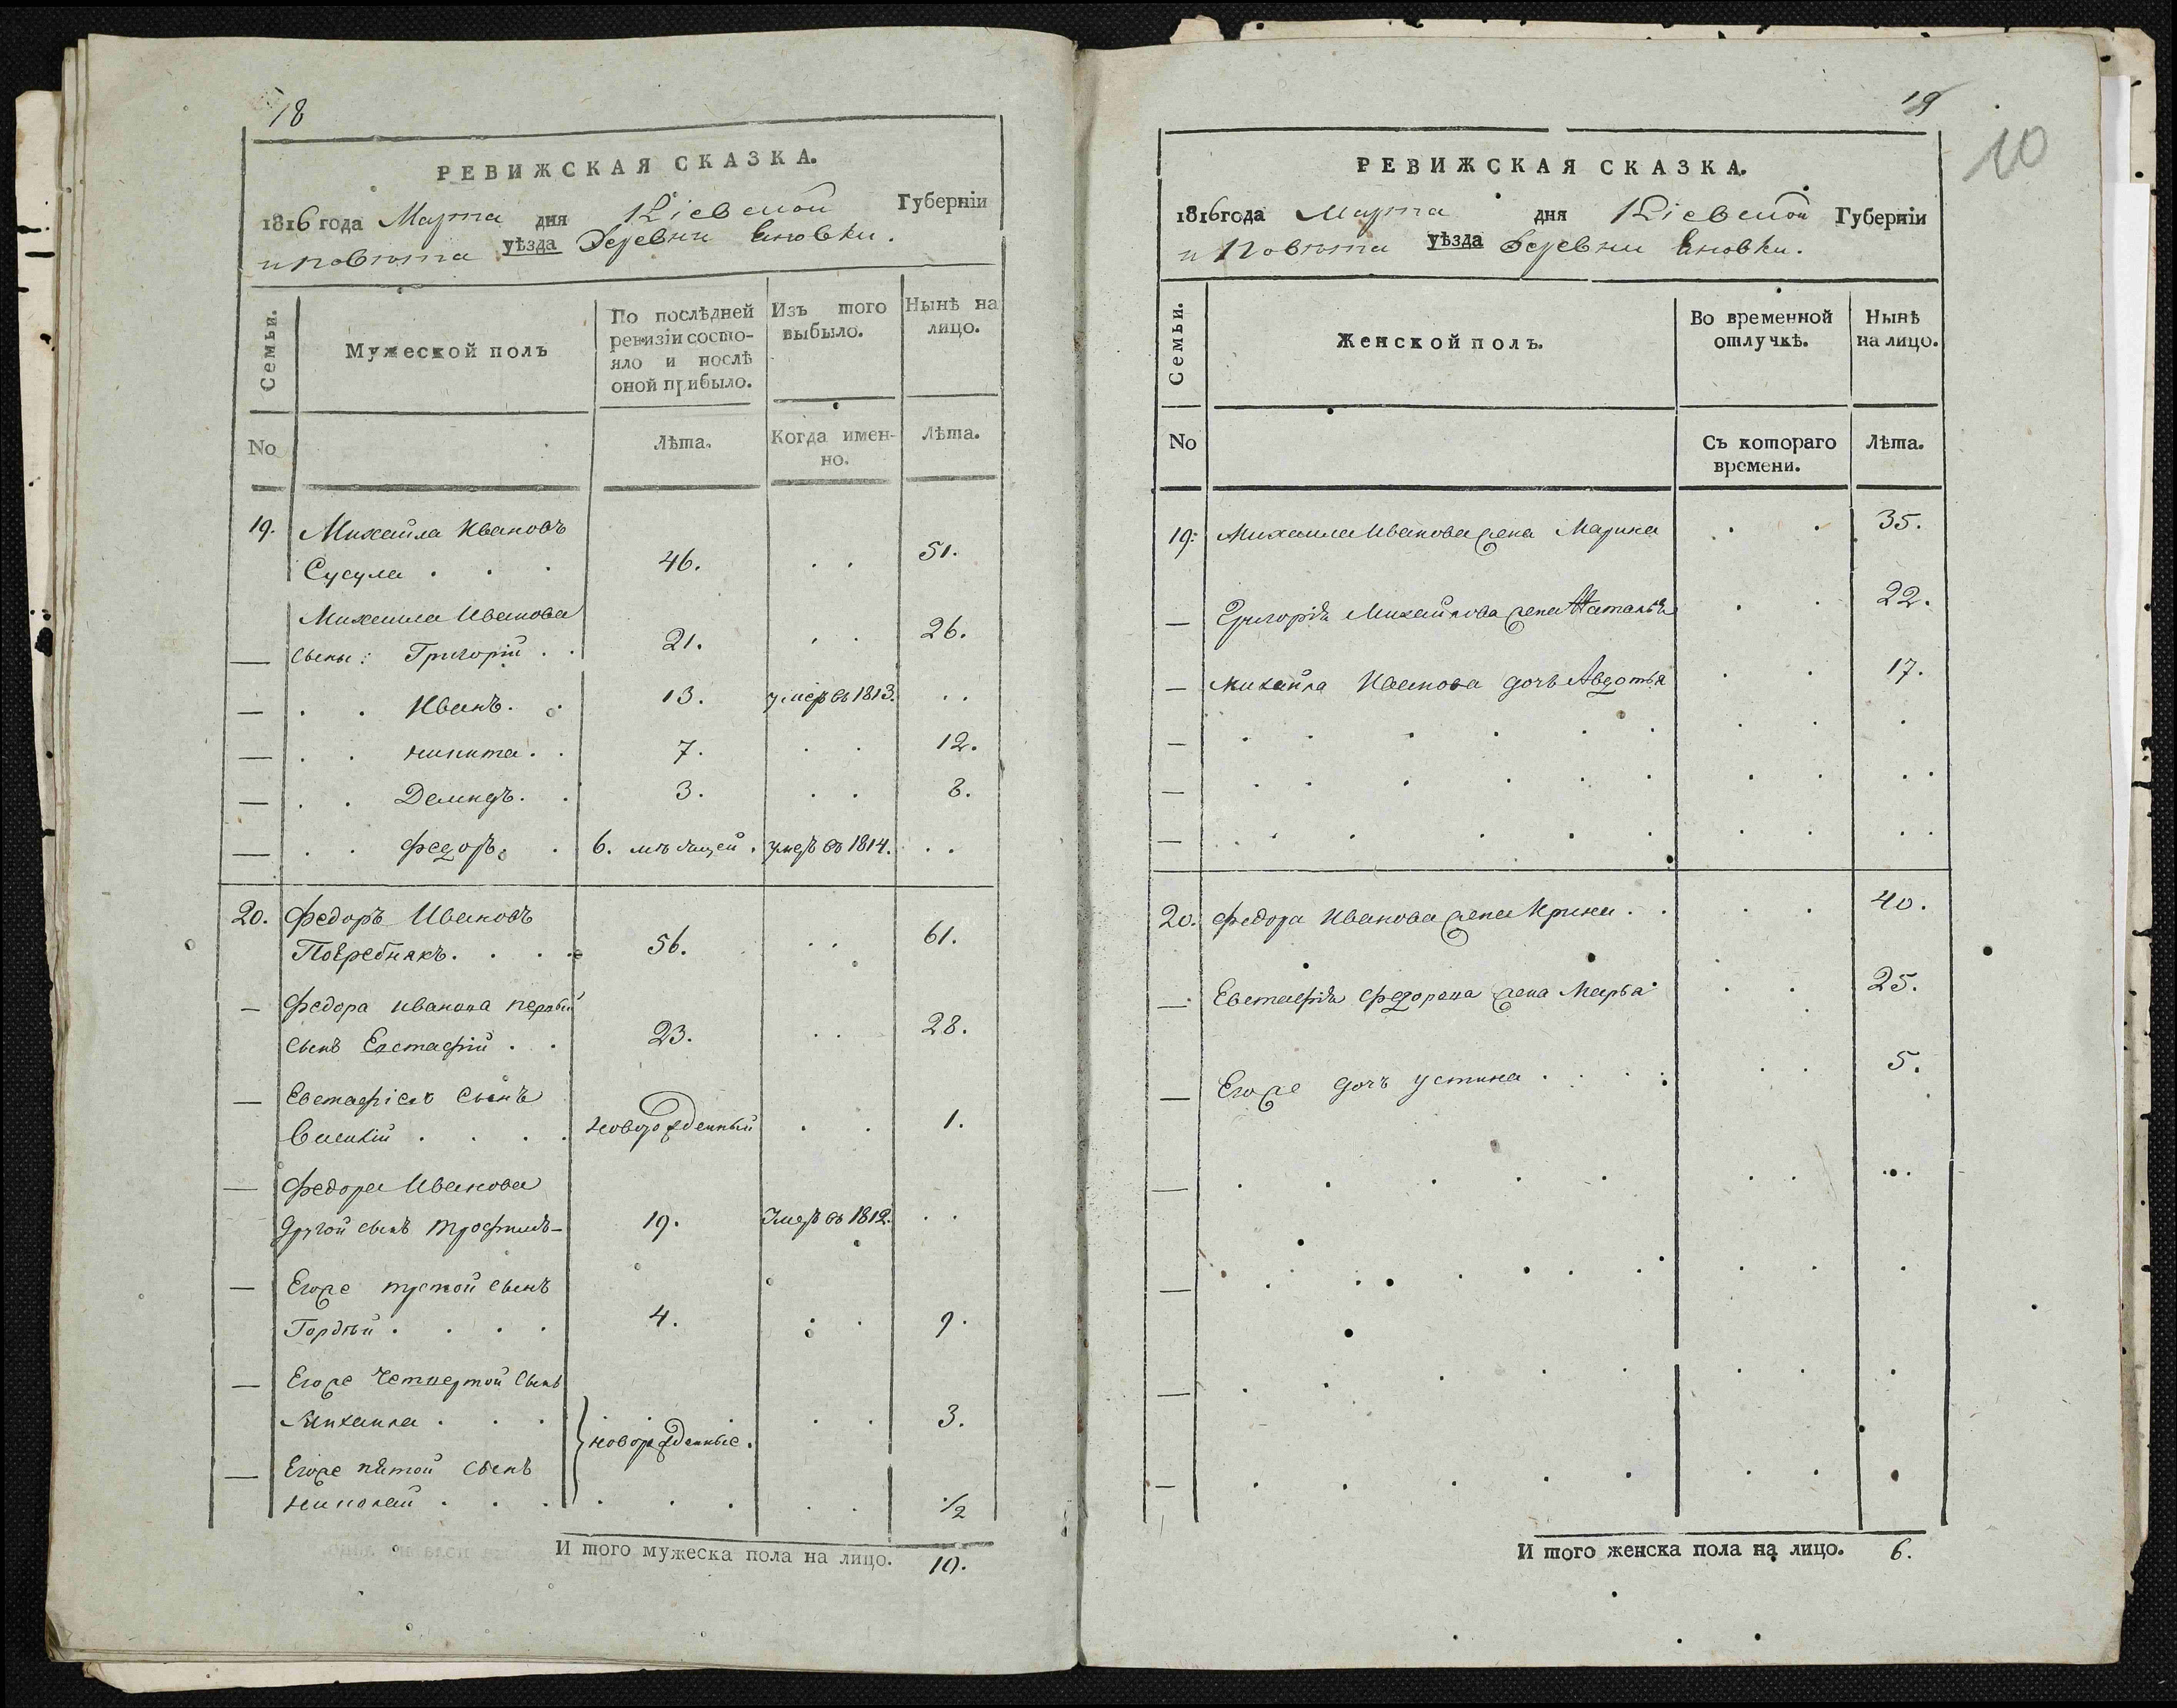 18
РЕВИЖСКАЯ СКАЗКА.
1816 года Марта дня Кіевской Губерніи
и повѣта уѣзда Деревни Яновки.
Семьи. Мужеской полъ По послѣдней ревизіи состояло и послѣ оной прибыло. Изъ того выбыло. Нынѣ на лицо.
No Лѣта. Когда именно. Лѣта.
19. Михайла Ивановъ
Сусула . . . 46. . . 51.
Михаила Иванова
— сыны: Григорій . . 21. . . 26.
— . . Иванъ. . 13. умеръ въ 1813. . .
— . . никита. . 7. . . 12.
— . . Демидъ. . 3. . . 8.
— . . федоръ. . 6. мѣсяцей. умеръ въ 1814. . .
20. федоръ Ивановъ
Погребнякъ. . . . 56. . . 61.
— федора иванова первый
сынъ Евстафій . . 23. . . 28.
— Евстафіевъ сынъ
. . . . новорожденный . . 1.
— федора Иванова
другой сынъ трофимъ— 19. Умеръ въ 1812. . .
— Егоже третой сынъ
Гордѣй . . . . 4. . . 9.
— Егоже четвертой сынъ
Михаила . . . . . . . . 3.
новорожденные.
— Егоже пятой сынъ
николай . . . . . . . . 1/2
И того мужеска пола на лицо. 10.
19
10
РЕВИЖСКАЯ СКАЗКА.
1816 года Марта дня Кіевской Губерніи
и Повѣта уѣзда Деревни Яновки.
Семьи. Женской полъ. Во временной отлучкѣ. Нынѣ на лицо.
No Съ котораго времени. Лѣта.
19. Михаила Иванова жена Марина . . 35.
— Григорія Михайлова жена Наталья . . 22.
— михайла Иванова дочь Авдотья . . 17.
20. федора Иванова жена Ирина . . . . 40.
— Евстафія федорова жена Марья . . 25.
— Егоже дочь устина . . . . . . 5.
И того женска пола на лицо. 6.